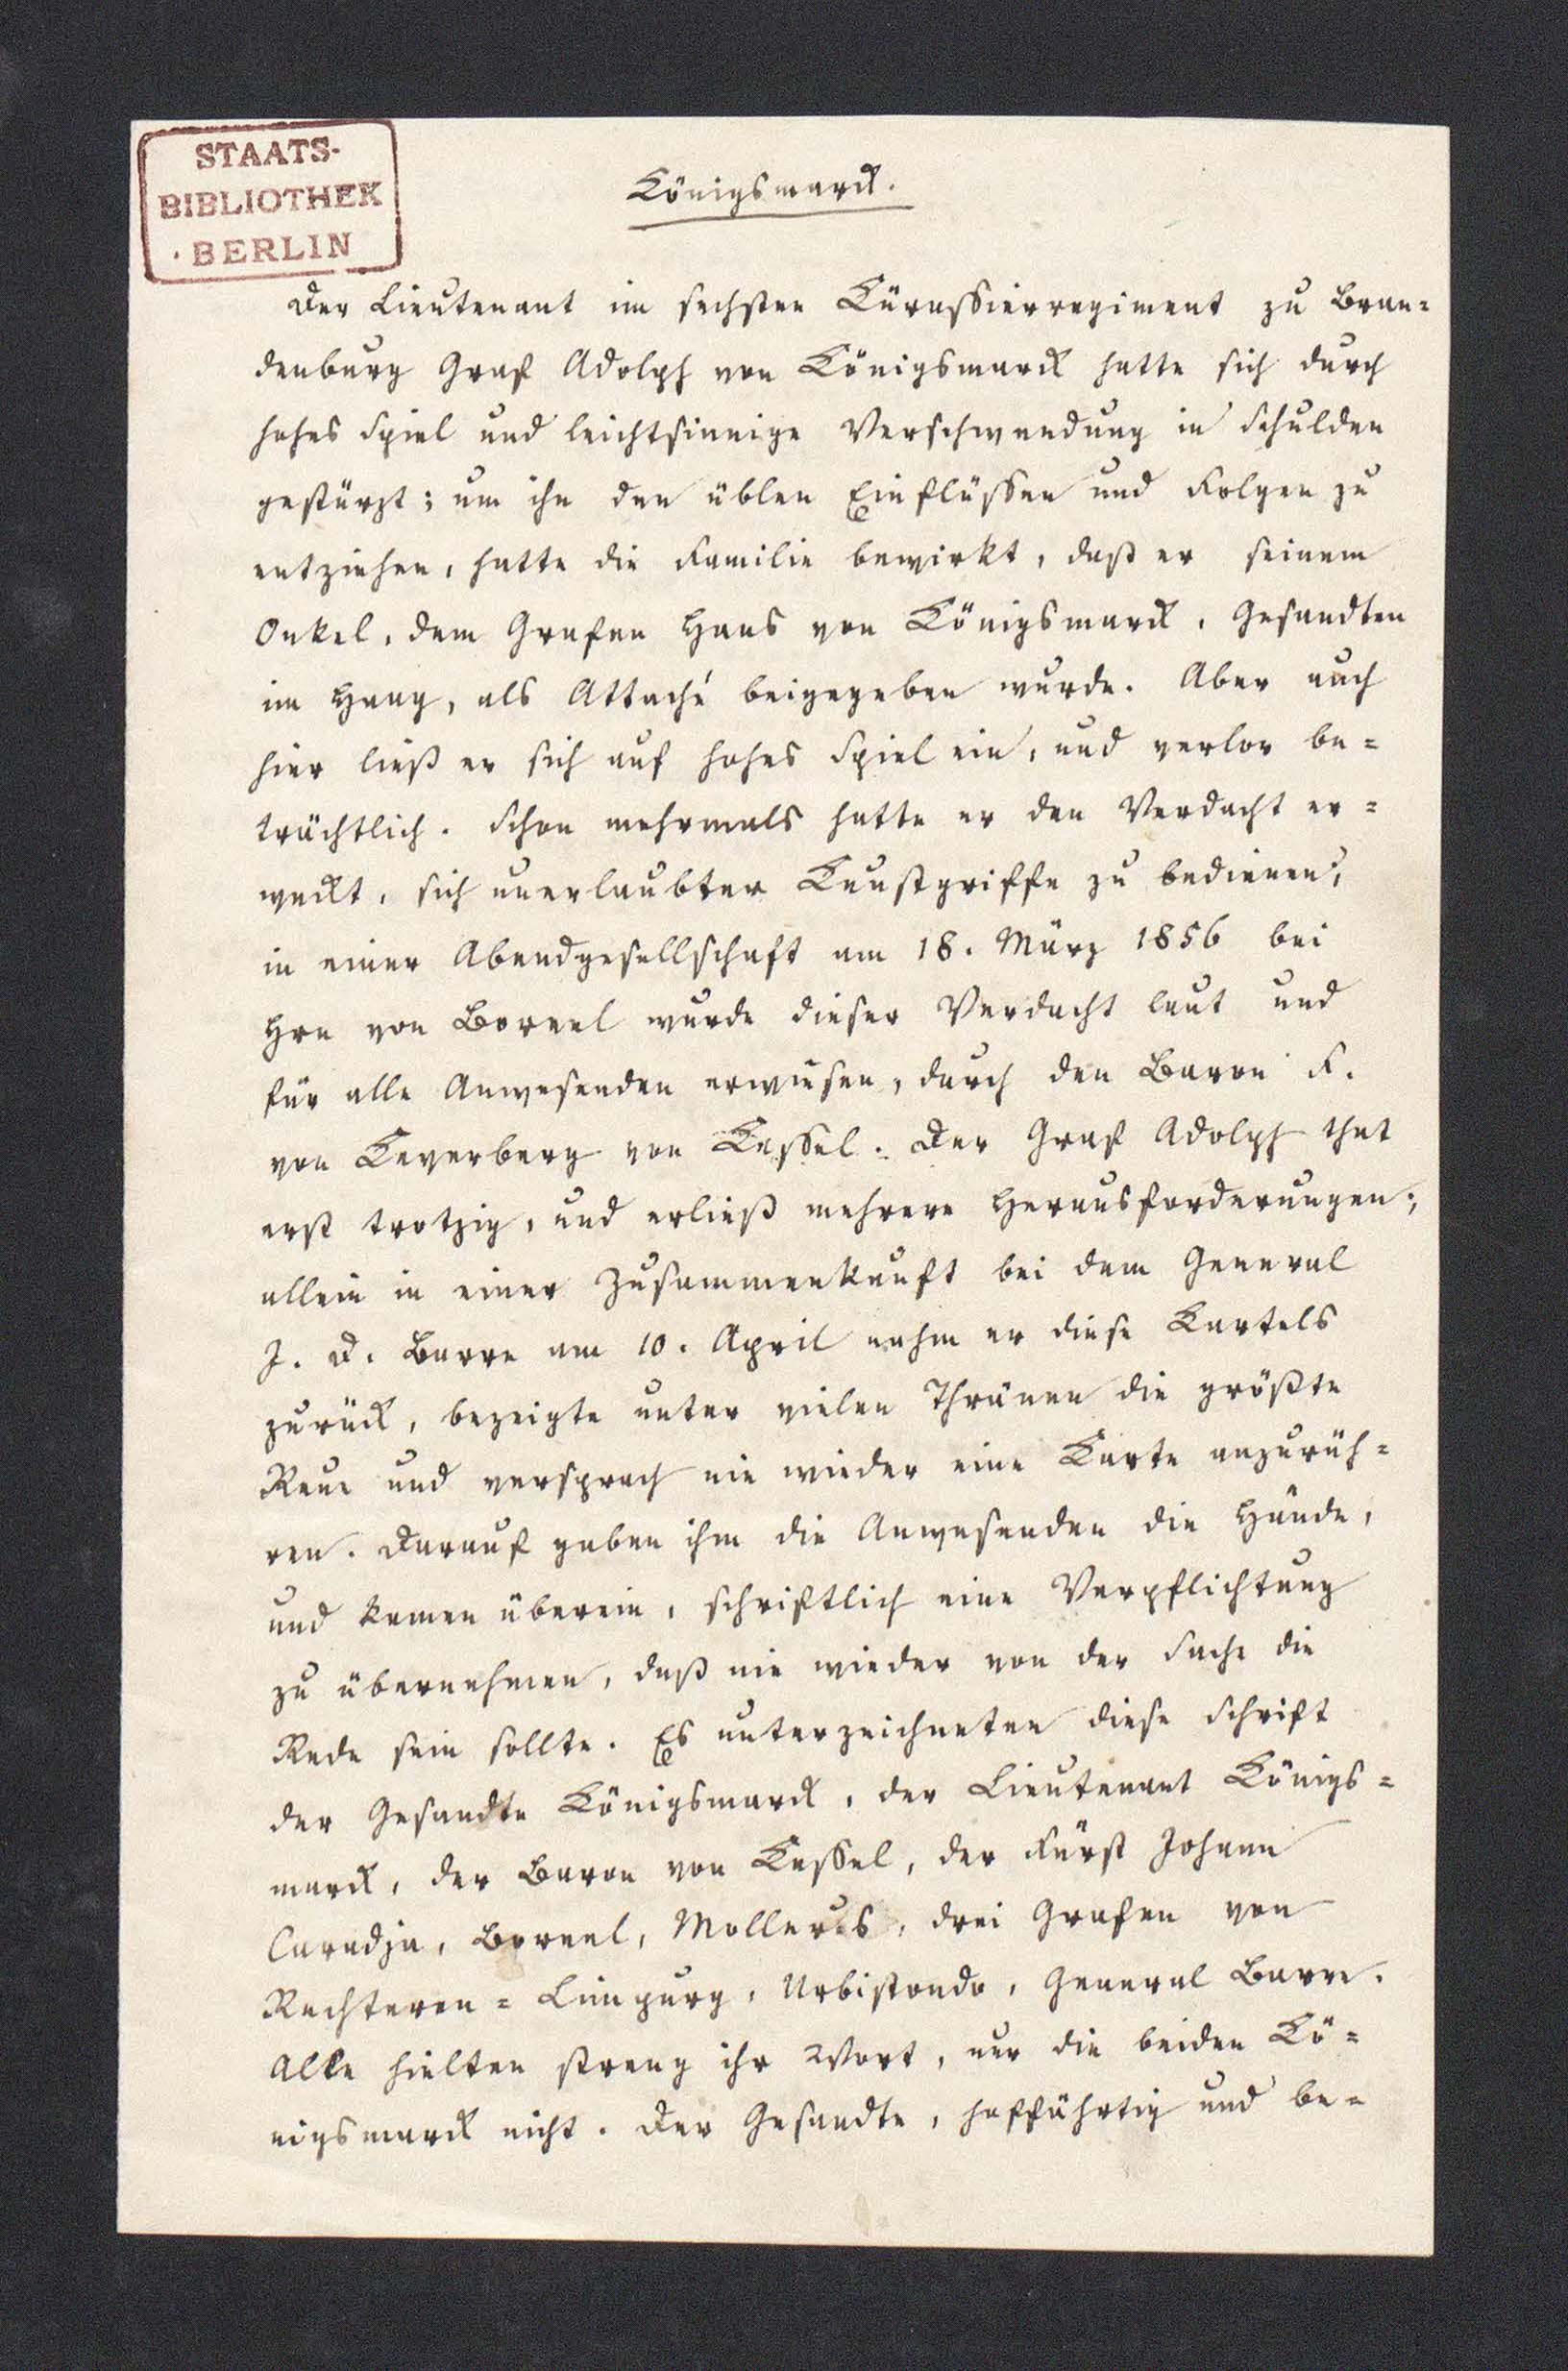 STAATS-
BIBLIOTHEK
·BERLIN
Königsmarck.
Der Lieutenant im sechsten Kürassierregiment zu Bran=
denburg Graf Adolph von Königsmarck hatte sich durch
hohes Spiel und leichtsinnige Verschwendung in Schulden
gestürzt; um ihn den üblen Einflüssen und Folgen zu
entziehen, hatte die Familie bewirkt, daß er seinem
Onkel, dem Grafen Hans von Königsmarck, Gesandten
im Haag, als Attaché beigegeben wurde. Aber auch
hier ließ er sich auf hohes Spiel ein, und verlor be=
trächtlich. Schon mehrmals hatte er den Verdacht er=
weckt, sich unerlaubter Kunstgriffe zu bedienen;
in einer Abendgesellschaft am 18. März 1856 bei
Hrn von Boreel wurde dieser Verdacht laut und
für alle Anwesenden erwiesen, durch den Baron F.
von Keverberg von Kessel. Der Graf Adolph that
erst trotzig, und erließ mehrere Herausforderungen;
allein in einer Zusammenkunft bei dem General
J. D. Barre am 10. April nahm er diese Kartels
zurück, bezeigte unter vielen Thränen die größte
Reue und versprach nie wieder eine Karte anzurüh=
ren. Darauf gaben ihm die Anwesenden die Hände,
und kamen überein, schriftlich eine Verpflichtung
zu übernehmen, daß nie wieder von der Sache die
Rede sein sollte. Es unterzeichneten diese Schrift
der Gesandte Königsmarck, der Lieutenant Königs=
marck, der Baron von Kessel, der Fürst Johann
Caradja, Boreel, Mollerus, drei Grafen von
Rechteren=Limpurg, Urbistondo, General Barre.
Alle hielten streng ihr Wort, nur die beiden Kö=
nigsmarck nicht. Der Gesandte, hoffährtig und be=